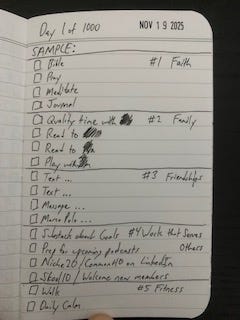 Day 1 of 1000 NOV 19 2025
SAMPLE:
Bible #1 Faith
Pray
Meditate
Journal
Quality time with #2 Family
Read to
Read to
Play with
Text ... #3 Friendships
Text ...
Message ...
Marco Polo ...
Substack about Goals #4 Work that Serves
Prep for upcoming podcasts Others
Niche20/Comment40 on LinkedIn
Skool10/Welcome new members
Walk #5 Fitness
Daily Calm